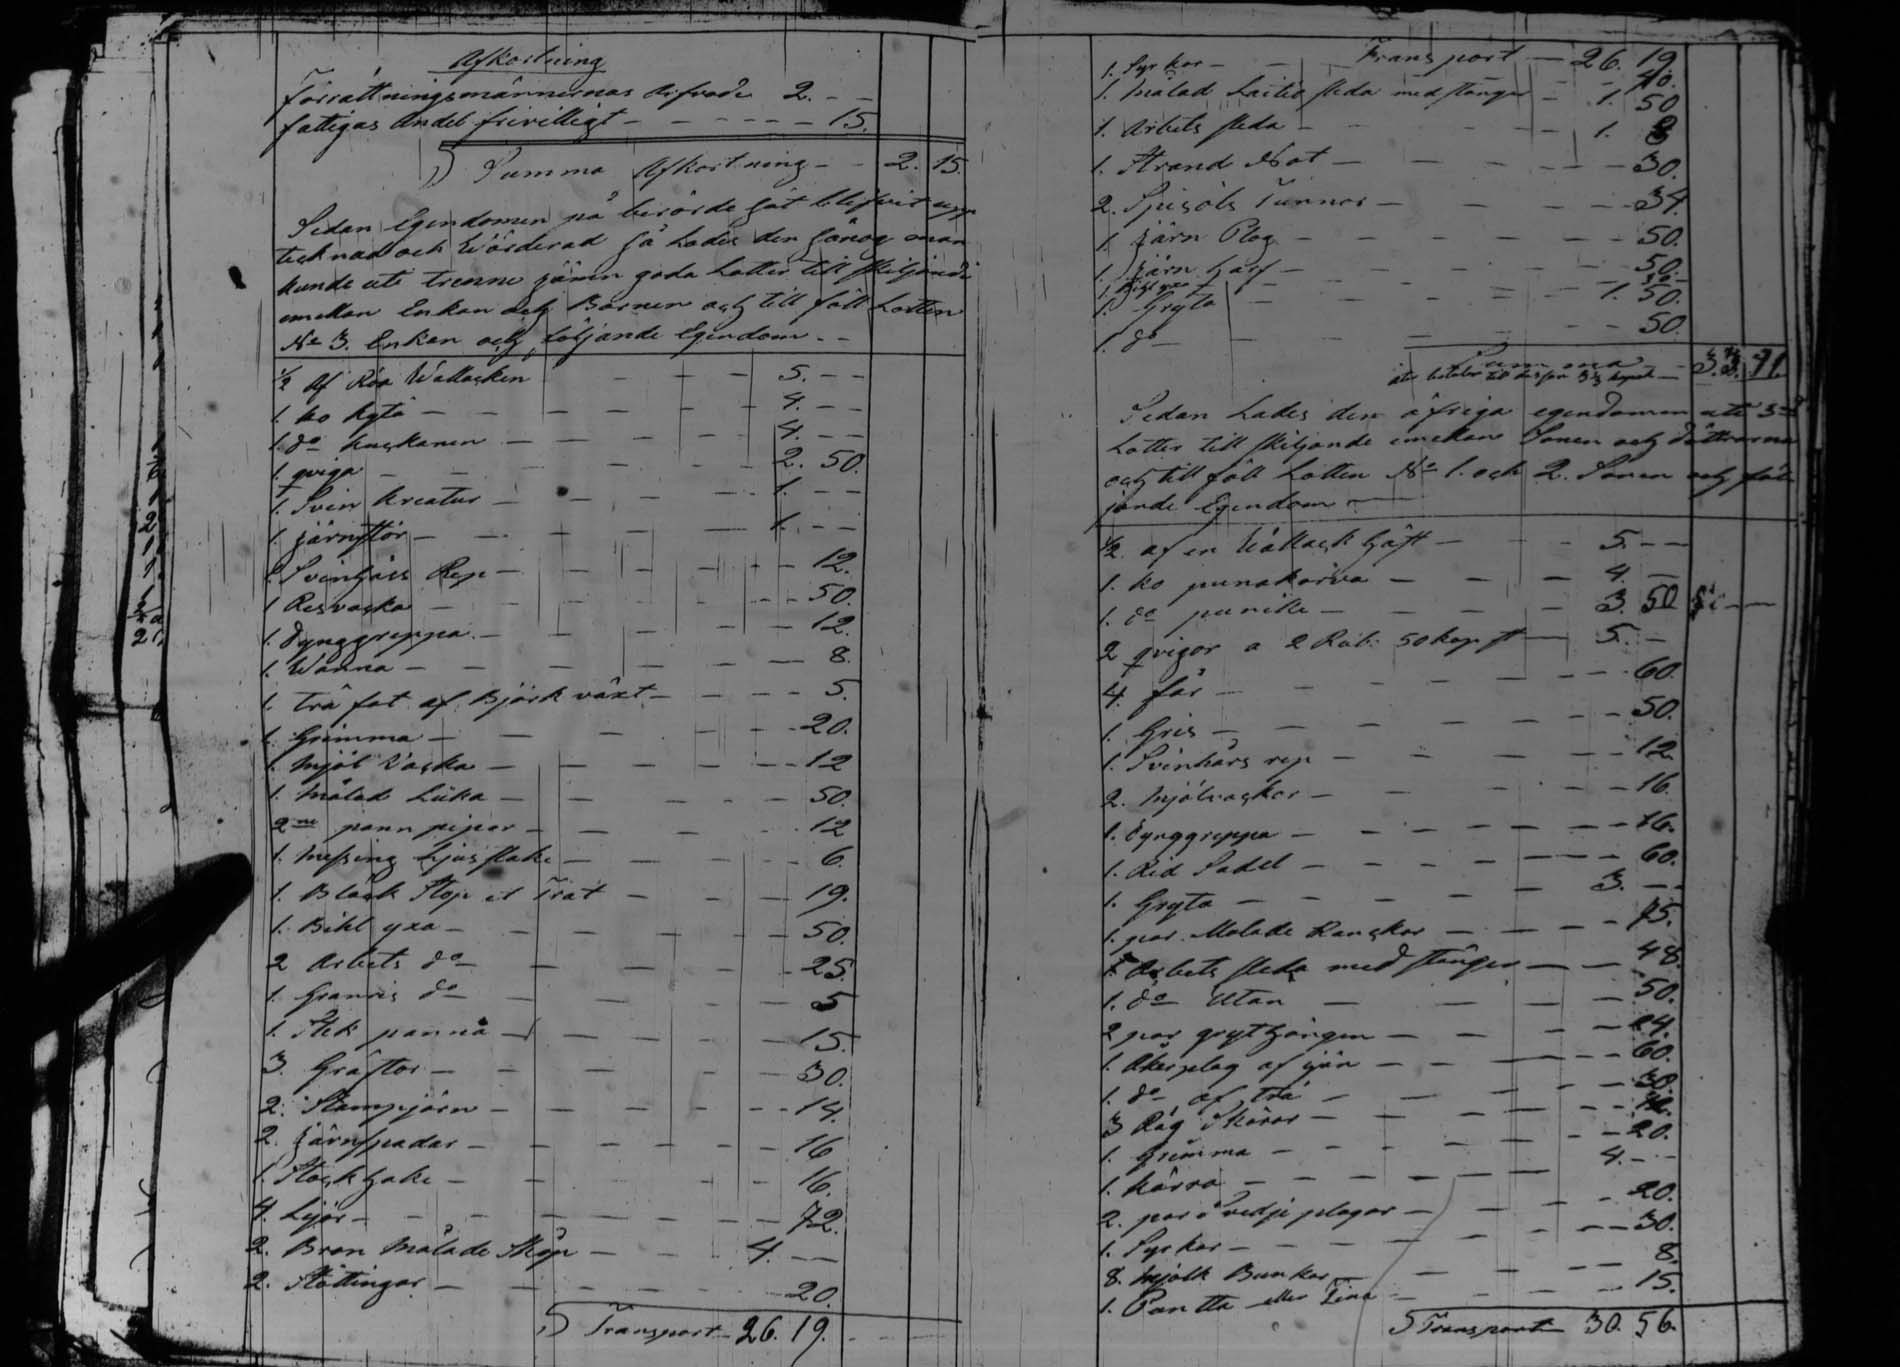 Afkortning
Förrättningsmännernas Arfvode 2. – –
fattigas Andel frivilligt – – – – – 15.
Summa Afkortning – – 2. 15.
Sedan Egendomen på berörde sät blifvit upp
tecknad och Wärderad så Lades den sånog man
kunde uti trenne jämn goda Lotter till skiljande
emellan Enkan och Barnen och till föll Lotten
No 3. Enkan och följande Egendom –
1/2 Af Röa Wallacken – – – 5. – –
1. ko Kytö – – – – 4. – –
1. do – – – 4. – –
1. qviga – – – 2. 50.
1. Svin kreatur – – – 1. – –
1. järnstör – – – 1. – –
1. Svinhårs Rep – – – 12.
1 Resvaska – – – 50.
1. dynggreppa – – – 12.
1. Wanna – – – 8.
1. trä fat af Björk växt – – – 5.
1. Grimma – – – 20.
1. Mjöl Väska – – – 12
1. Målad Luka – – – 50.
2ne pann pipor – – – 12
1. Messing Ljusstake – – – 6.
1. Bläck Stop et Trat – – – 19.
1. Bihl yxa – – – 50.
2 Arbets do – – – 25.
1. Granris do – – – 5
1. Stek panna – – – 15.
3. Gräftor – – – 30.
2. Stampjärn – – – 14.
2. Järnspadar – – – 16
1. Stockhake – – – 16.
4. Lijor – – – 72.
2. Brun Målade Skåp – – – 4. – –
2. Stöttingar – – – 20.
Transport 26. 19.
Transport – 26. 19.
1. Syrkor – – 40.
1. Målad Laitio släda med stänger – 1. 50
1. Arbets släda – – – 1. 8
1. Strand Not – – – 30.
2. Spisöls Tunnor – – – 34.
1. Järn Plog – – – 50.
1. Järn harf – – – 50.
1. Gryta – – – 1. 50.
1. do – – – 50.
Summa – 33. 71.
Sedan Lades den öfriga egendomen uti 3ne
Lotter till skiljande emellan Sonen och döttrarna
och till föll Lotten No 1. och 2. Sonen och föl
jande Egendom –
1/2. af en Wallack häst – – – 5. – –
1. ko punakorva – – – 4. –
1. do punike – – – 3. 50
2 qvigor a 2 Rub: 50 kop st – 5. –
4. får – – – 60.
1. Gris – – – 50.
1. Svinhårs rep – – – 12
2. Mjölvaskor – – – 16.
1. dynggreppa – – – 16.
1. Rid Sadel – – – 60.
1. Gryta – – – 3. – –
1. par. Målade Kanskor – – – 75.
1. Arbets släda med stänger – – 48.
1. do Utan – – – 50.
2 par grythängen – – – 24.
1. Åkerplog af järn – – – 60.
1. do af trä – – – 30.
3 Råg Skäror – – –
1. Grimma – – – 20.
1. kärra – – – 4. – –
2. par svedje plogar – – – 20.
1. Syrkor – – – 30.
8. Mjölk Bunkar – – – 8.
1. Pontta eller Tina – – – 15.
Transport 30. 56.